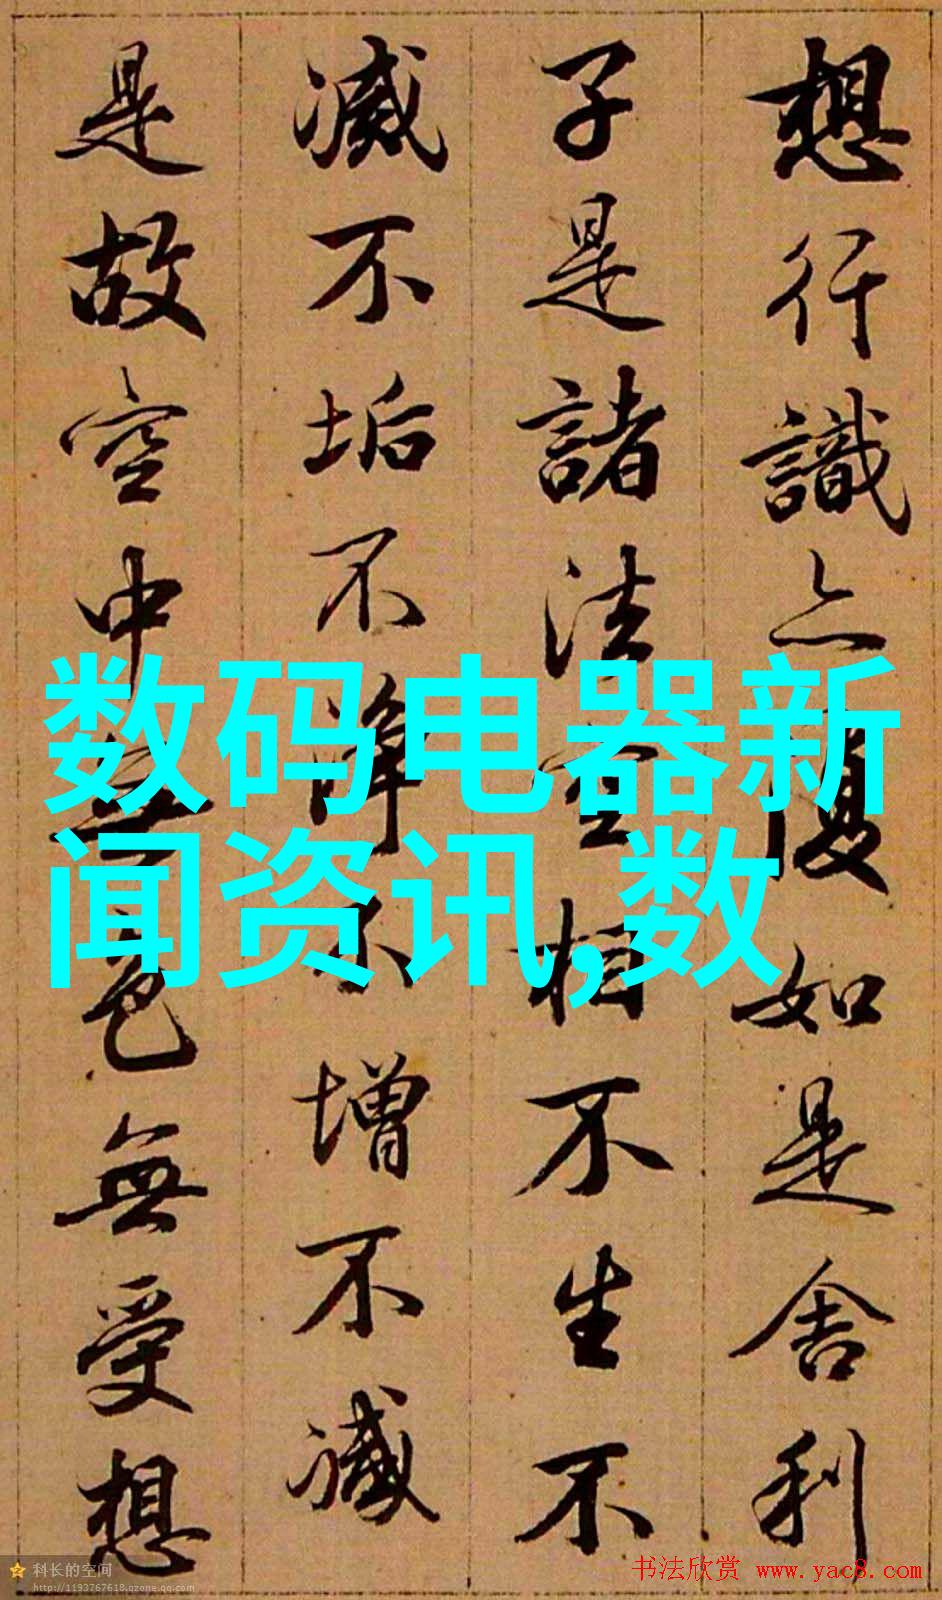 想行識亦復如是舍利
子是諸法空相不生不
滅不垢不淨不增不減
是故空中無色無受想
数码电器新
闻资讯,数
科长的空间
http://1193767618.qzone.qq.com
书法欣赏 www.yac8.com